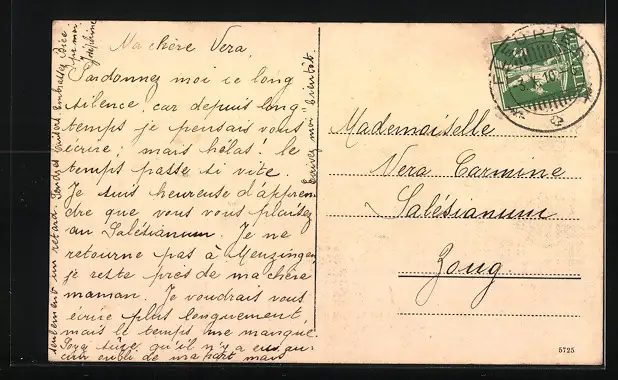 Ma chère Vera,
Pardonnez moi ce long
silence, car depuis long
temps je pensais vous
écrire; mais hélas! le
temps passe si vite.
Je suis heureuse d'appren
dre que vous vous plaisez
au Salésianum. Je ne
retourne pas à Menzingen
je reste près de ma chère
maman. Je voudrais vous
écrire plus longuement,
mais le temps me manque.
Soyez sûre qu'il n'y a eu au-
cun oubli de ma part mais
seulement un retard. Tendres baisers. Embrassez Bice
de moi
Joséphine
Ecrivez moi bientôt.
Mademoiselle
Vera Carmine
Salésianum
Zoug.
HELVETIA
5725